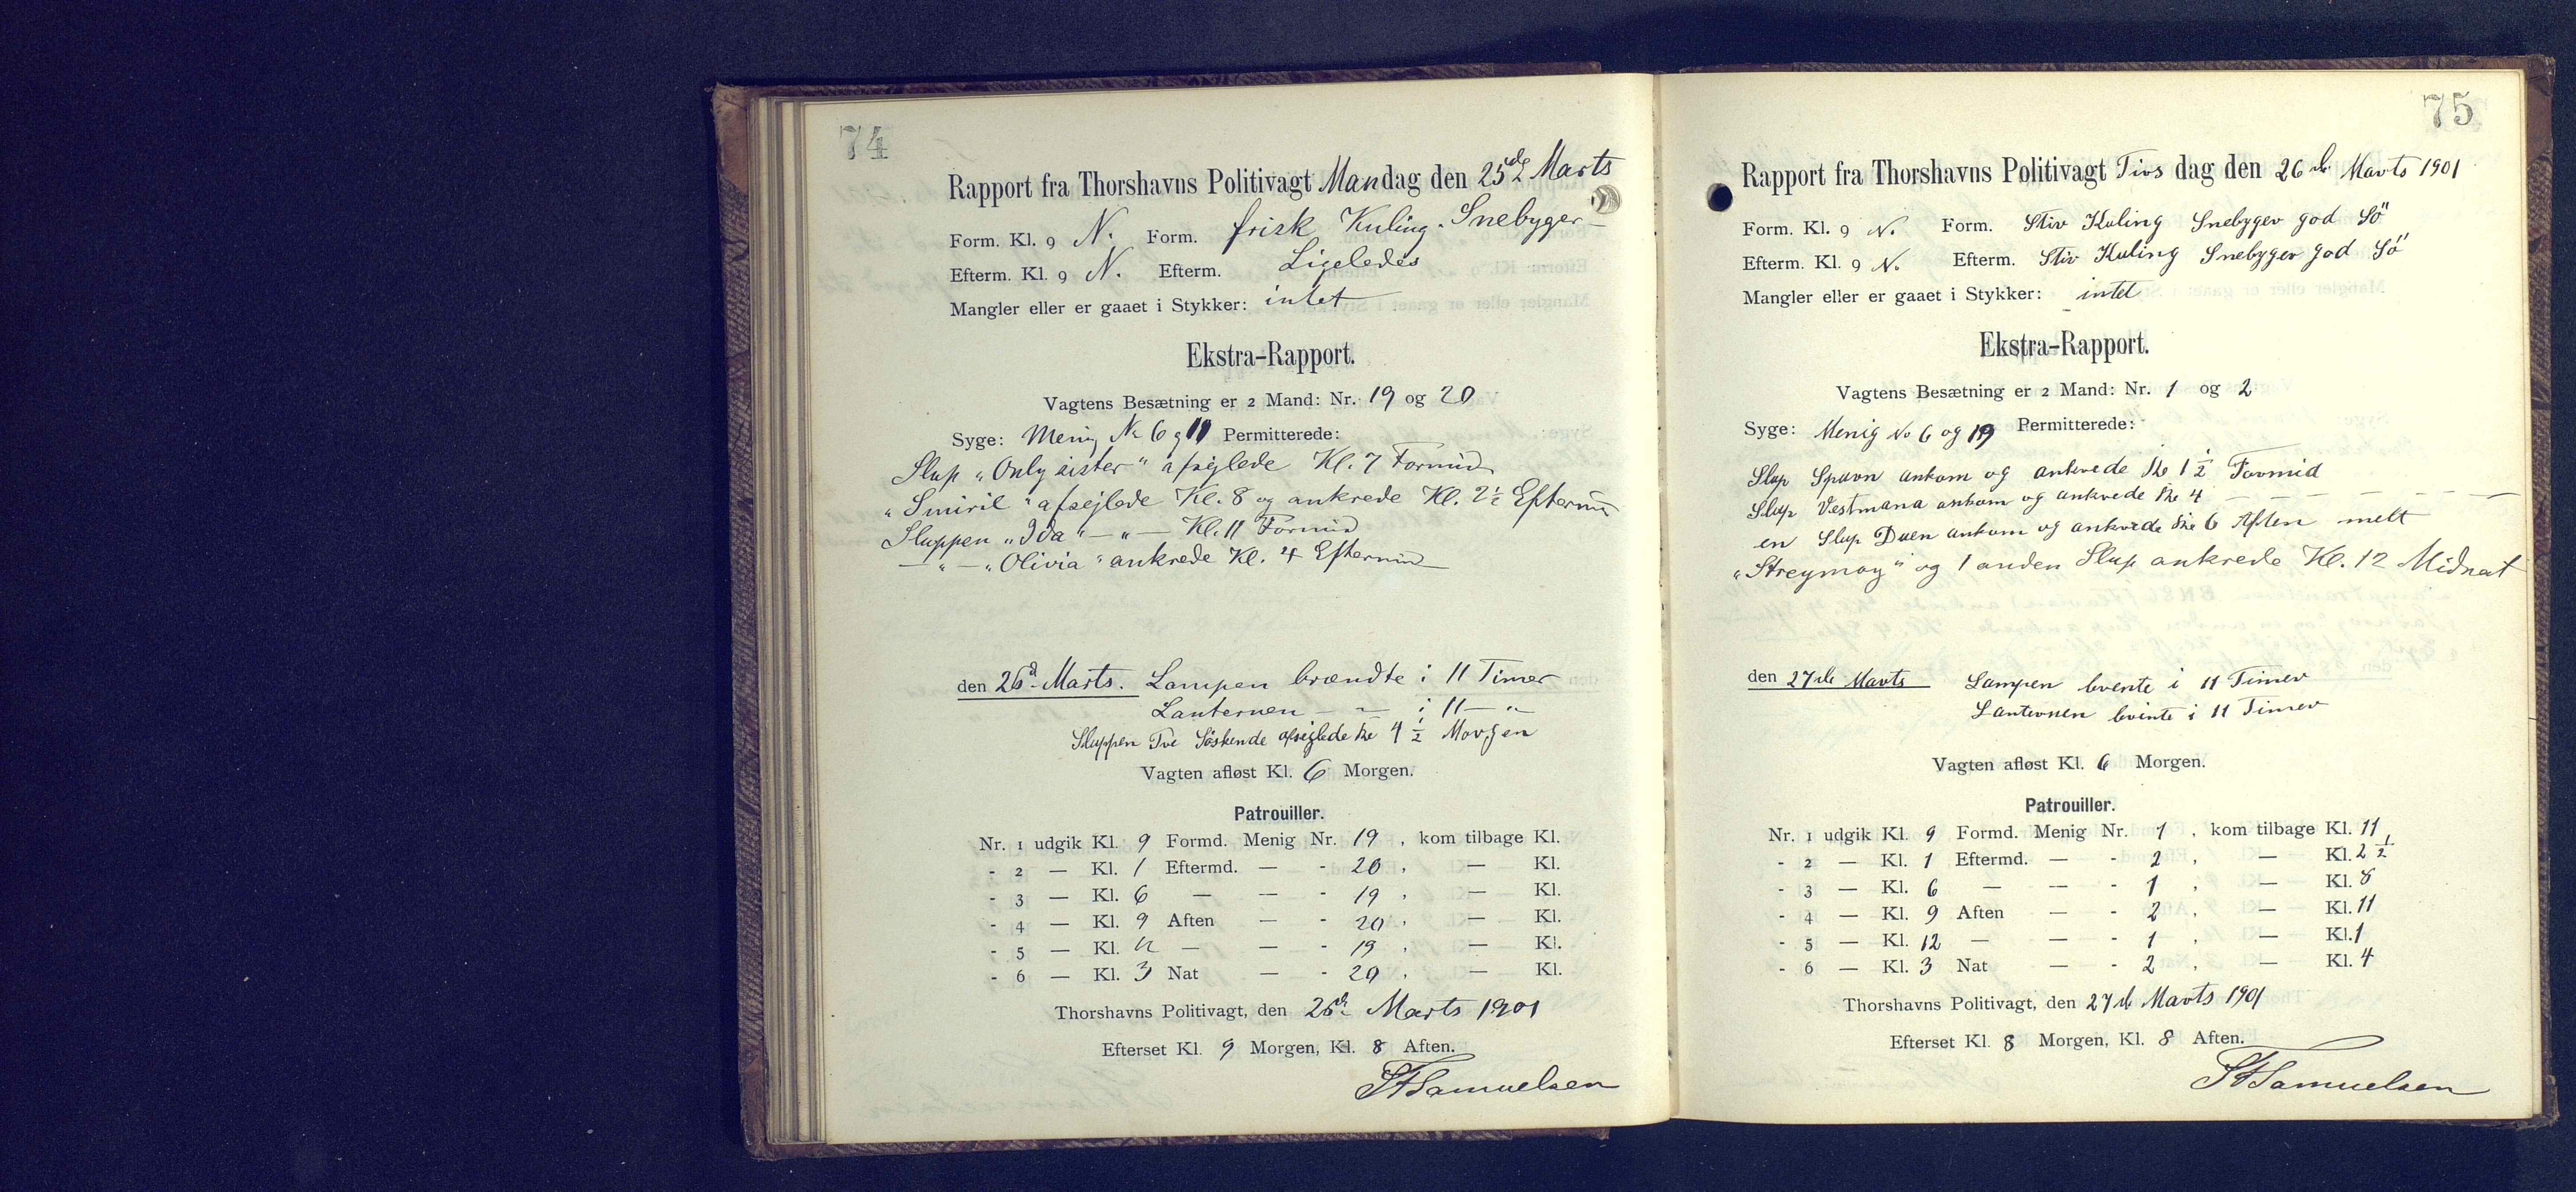 74
Rapport fra Thorshavns Politivagt Mandag den 25de Marts
Form. Kl. 9 N. Form. frisk Kuling. Snebyger
Efterm. Kl. 9 N. Efterm. Ligeledes
Mangler eller er gaaet i Stykker: intet
Ekstra-Rapport.
Vagtens Besætning er 2 Mand: Nr. 19 og 20
Syge: Menig No 6 og 11 Permitterede:
Slup "Only sister" afsejlede Kl. 7 Formid
"Smiril" afsejlede Kl. 8 og ankrede Kl. 2½ Eftermid
Sluppen "Ida" — " — Kl. 11 Formid
— " — "Olivia" ankrede Kl. 4 Eftermid
den 26d. Marts. Lampen brændte i 11 Timer
Lanternen — " — i 11 — "
Sluppen Tvé Söskende afseglede Kl 4 ½ Morgen
Vagten afløst Kl. 6 Morgen.
Patrouiller.
Nr. 1 udgik Kl. 9 Formd. Menig Nr. 19, kom tilbage Kl.
- 2 — Kl. 1 Eftermd. — - 20, — Kl.
- 3 — Kl. 6 — — - 19, — Kl.
- 4 — Kl. 9 Aften — - 20, — Kl.
- 5 — Kl. 12 — — - 19, — Kl.
- 6 — Kl. 3 Nat — - 20, — Kl.
Thorshavns Politivagt, den 26d. Marts 1901
Efterset Kl. 9 Morgen, Kl. 8 Aften.
Samuelsen
75
Rapport fra Thorshavns Politivagt Tirs dag den 26de Marts 1901
Form. Kl. 9 N. Form. Stiv Kuling Snebyger god Sö
Efterm. Kl. 9 N. Efterm. Stiv Kuling Snebyger god Sö
Mangler eller er gaaet i Stykker: intet
Ekstra-Rapport.
Vagtens Besætning er 2 Mand: Nr. 1 og 2
Syge: Menig No 6 og 19 Permitterede:
Slup Spurn ankom og ankrede Kl 1 ½ Formid
Slup Vestmana ankom og ankrede Kl 4 — — — — — —
en Slup Duen ankom og ankrede Kl 6 Aften melt
"Streymoy" og 1 anden Slup ankrede Kl. 12 Midnat
den 27de Marts Lampen brente i 11 Timer
Lanternen brinte i 11 Timer
Vagten afløst Kl. 6 Morgen.
Patrouiller.
Nr. 1 udgik Kl. 9 Formd. Menig Nr. 1, kom tilbage Kl. 11
- 2 — Kl. 1 Eftermd. — - 2, — Kl. 2 ½
- 3 — Kl. 6 — — - 1, — Kl. 8
- 4 — Kl. 9 Aften — - 2, — Kl. 11
- 5 — Kl. 12 — — - 1, — Kl. 1
- 6 — Kl. 3 Nat — - 2, — Kl. 4
Thorshavns Politivagt, den 27de Marts 1901
Efterset Kl. 8 Morgen, Kl. 8 Aften.
Samuelsen